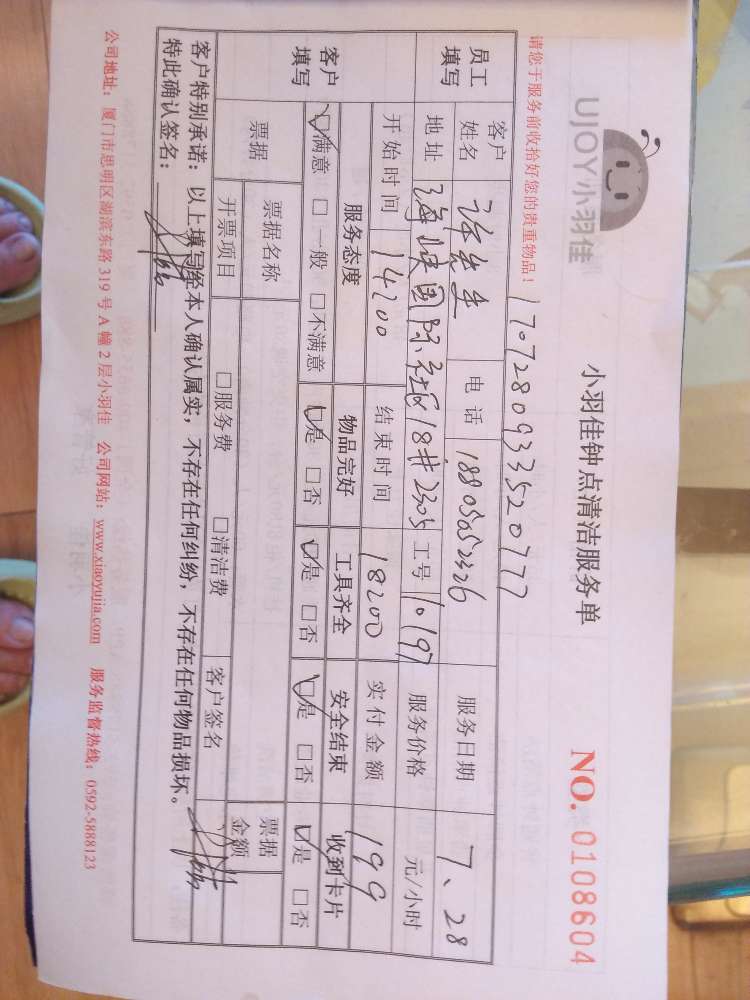 UJOY小羽佳
小羽佳钟点清洁服务单
NO. 0108604
请您于服务前收拾好您的贵重物品！
1707280933520777
员工填写 客户姓名 许先生 电话 18805052326 服务日期 7、28
地址 海峡国际社区18#2305 工号 10197 服务价格 元/小时
开始时间 14:00 结束时间 18:00 实付金额 199
客户填写 服务态度 物品完好 工具齐全 安全结束 收到卡片
☑满意 □一般 □不满意 ☑是 □否 ☑是 □否 ☑是 □否 ☑是 □否
票据 票据名称 票据金额
开票项目 □服务费 □清洁费 客户签名
客户特别承诺：以上填写经本人确认属实，不存在任何纠纷，不存在任何物品损坏。
特此确认签名：
公司地址：厦门市思明区湖滨东路 319 号 A 幢 2 层小羽佳 公司网站：www.xiaoyujia.com 服务监督热线：0592-5888123